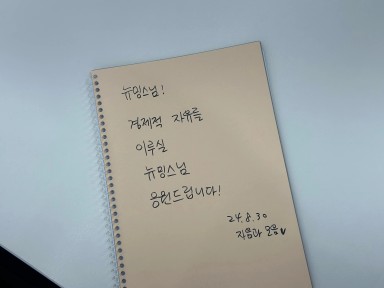 뉴밍스님!
경제적 자유를
이루실
뉴밍스님
응원드립니다!
24.8.30
자음과 모음